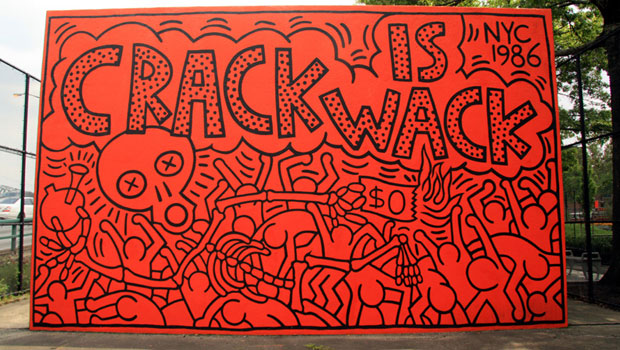 CRACK IS WACK
NYC
1986
$0